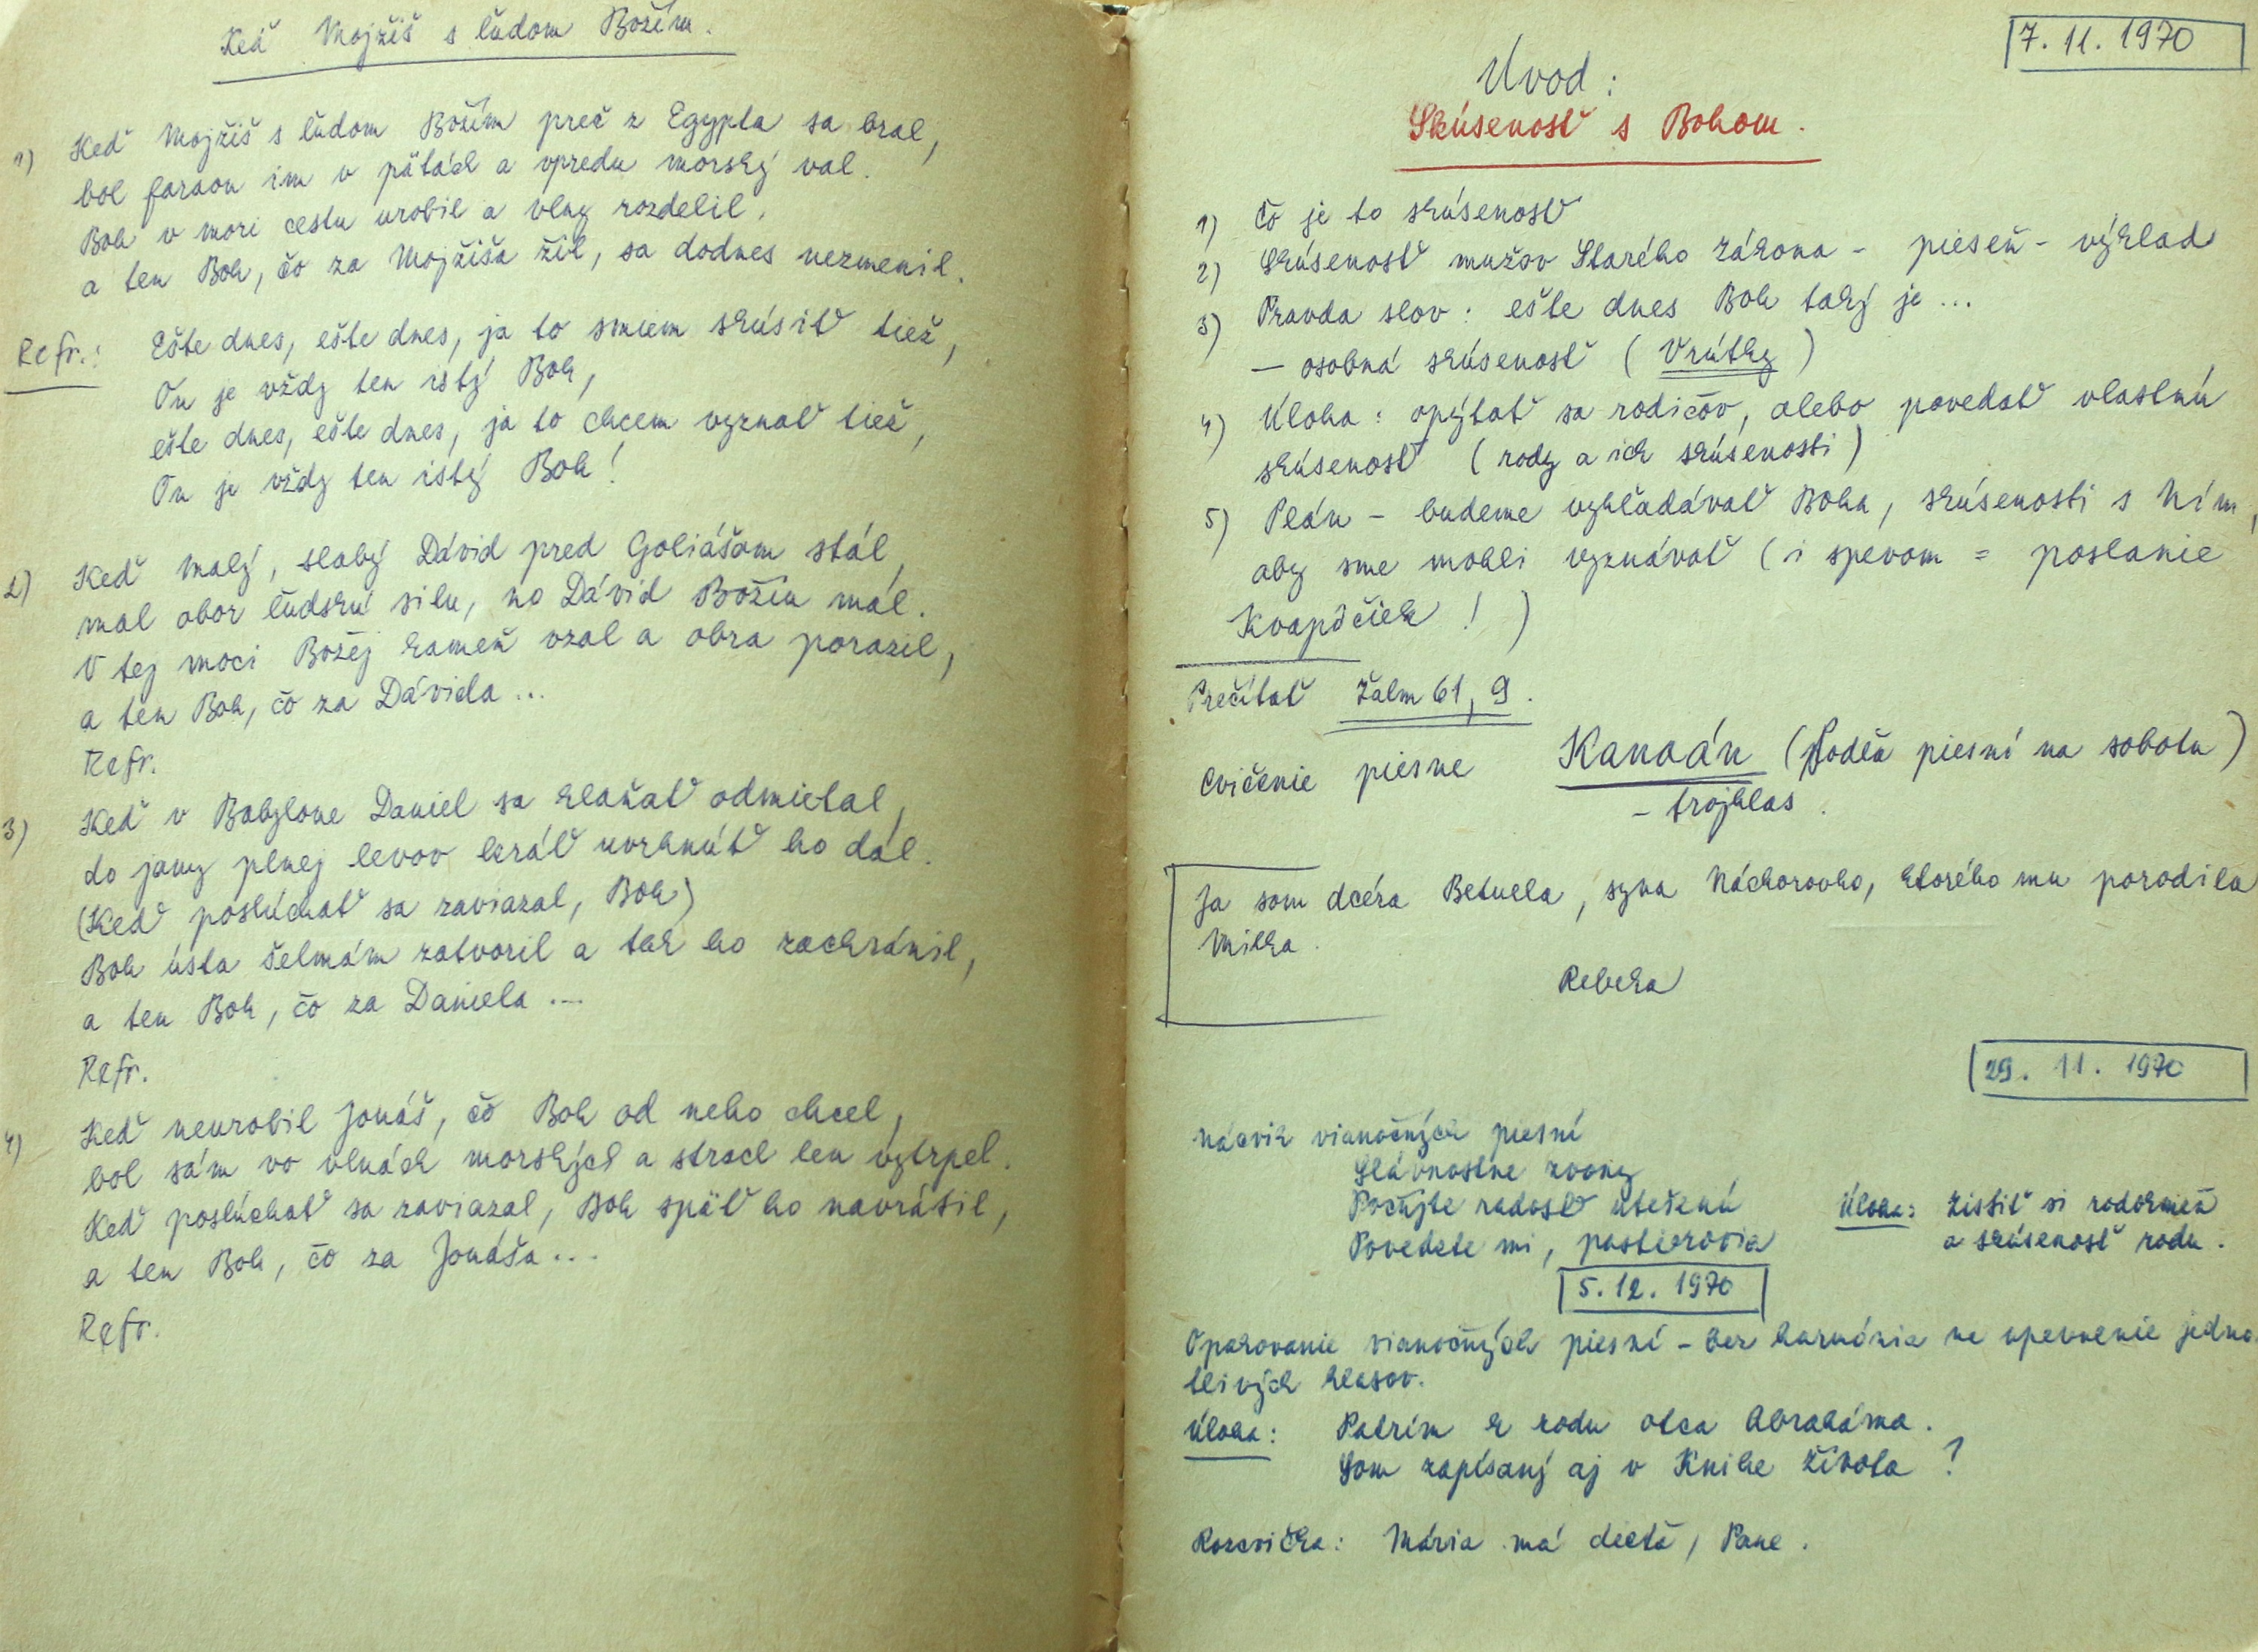 Keď Mojžiš s ľudom Božím.
1) Keď Mojžiš s ľudom Božím preč z Egypta sa bral,
bol faraon im v pätách a vpredu morský val.
Boh v mori cestu urobil a vlny rozdelil,
a ten Boh, čo za Mojžiša žil, sa dodnes nezmenil.
Refr.: Ešte dnes, ešte dnes, ja to smiem skúsiť tiež,
On je vždy ten istý Boh,
ešte dnes, ešte dnes, ja to chcem vyznať tiež,
On je vždy ten istý Boh!
2) Keď malý, slabý Dávid pred Goliášom stál,
mal obor ľudskú silu, no Dávid Božiu mál.
V tej moci Božej kameň vzal a obra porazil,
a ten Boh, čo za Dávida ...
Refr.
3) Keď v Babylone Daniel sa klaňať odmietal,
do jamy plnej levov kráľ uvrhnúť ho dál.
(Keď poslúchať sa zaviazal, Boh)
Boh ústa šelmám zatvoril a tak ho zachránil,
a ten Boh, čo za Daniela ...
Refr.
4) Keď neurobil Jonáš, čo Boh od neho chcel,
bol sám vo vlnách morských a strach len vytrpel.
Keď poslúchať sa zaviazal, Boh späť ho navrátil,
a ten Boh, čo za Jonáša ...
Refr.
7. 11. 1970
Úvod:
Skúsenosť s Bohom.
1) Čo je to skúsenosť
2) Skúsenosť mužov Starého zákona - pieseň - výklad
3) Pravda slov: ešte dnes Boh taký je ...
- osobná skúsenosť (Vrútky)
4) Úloha: opýtať sa rodičov, alebo povedať vlastnú
skúsenosť (rody a ich skúsenosti)
5) Plán - budeme vyhľadávať Boha, skúsenosti s Ním,
aby sme mohli vyznávať (i spevom = poslanie
Kvapôčiek!)
Prečítať Žalm 61, 9.
Cvičenie piesne Kanaán (Podľa piesní na sobotu)
- trojhlas.
Ja som dcéra Betuela, syna Náchorovho, ktorého mu porodila
Milka.
Rebeka
29. 11. 1970
Nácvik vianočných piesní
Slávnostne zvony
Počujte radosť utešenú
Úloha: Zistiť si rodokmeň
Povedzte mi, pastierovia
a skúsenosť rodu.
5. 12. 1970
Opakovanie vianočných piesní - bez harmónia na upevnenie jedno
tlivých hlasov.
Úloha: Patrím k rodu otca Abraháma.
Som zapísaný aj v Knihe života?
Rozcvička: Mária má dieťa, Pane.